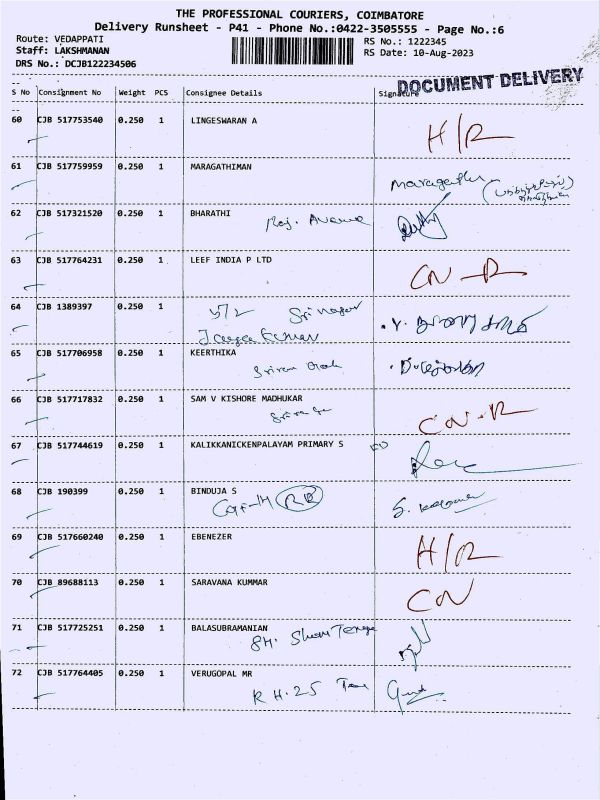 THE PROFESSIONAL COURIERS, COIMBATORE
Delivery Runsheet - P41 - Phone No.:0422-3505555 - Page No.:6
Route: VEDAPPATI
RS No.: 1222345
Staff: LAKSHMANAN
RS Date: 10-Aug-2023
DRS No.: DCJB122234506
DOCUMENT DELIVERY
S No Consignment No Weight PCS Consignee Details Signature
60 CJB 517753540 0.250 1 LINGESWARAN A
H/R
61 CJB 517759959 0.250 1 MARAGATHIMAN
62 CJB 517321520 0.250 1 BHARATHI
63 CJB 517764231 0.250 1 LEEF INDIA P LTD
CN-R
64 CJB 1389397 0.250 1
Sri nagar
65 CJB 517706958 0.250 1 KEERTHIKA
66 CJB 517717832 0.250 1 SAM V KISHORE MADHUKAR
CN-R
67 CJB 517744619 0.250 1 KALIKKANICKENPALAYAM PRIMARY S
68 CJB 190399 0.250 1 BINDUJA S
69 CJB 517660240 0.250 1 EBENEZER
H/R
70 CJB 89688113 0.250 1 SARAVANA KUMMAR
CN
71 CJB 517725251 0.250 1 BALASUBRAMANIAN
72 CJB 517764405 0.250 1 VERUGOPAL MR